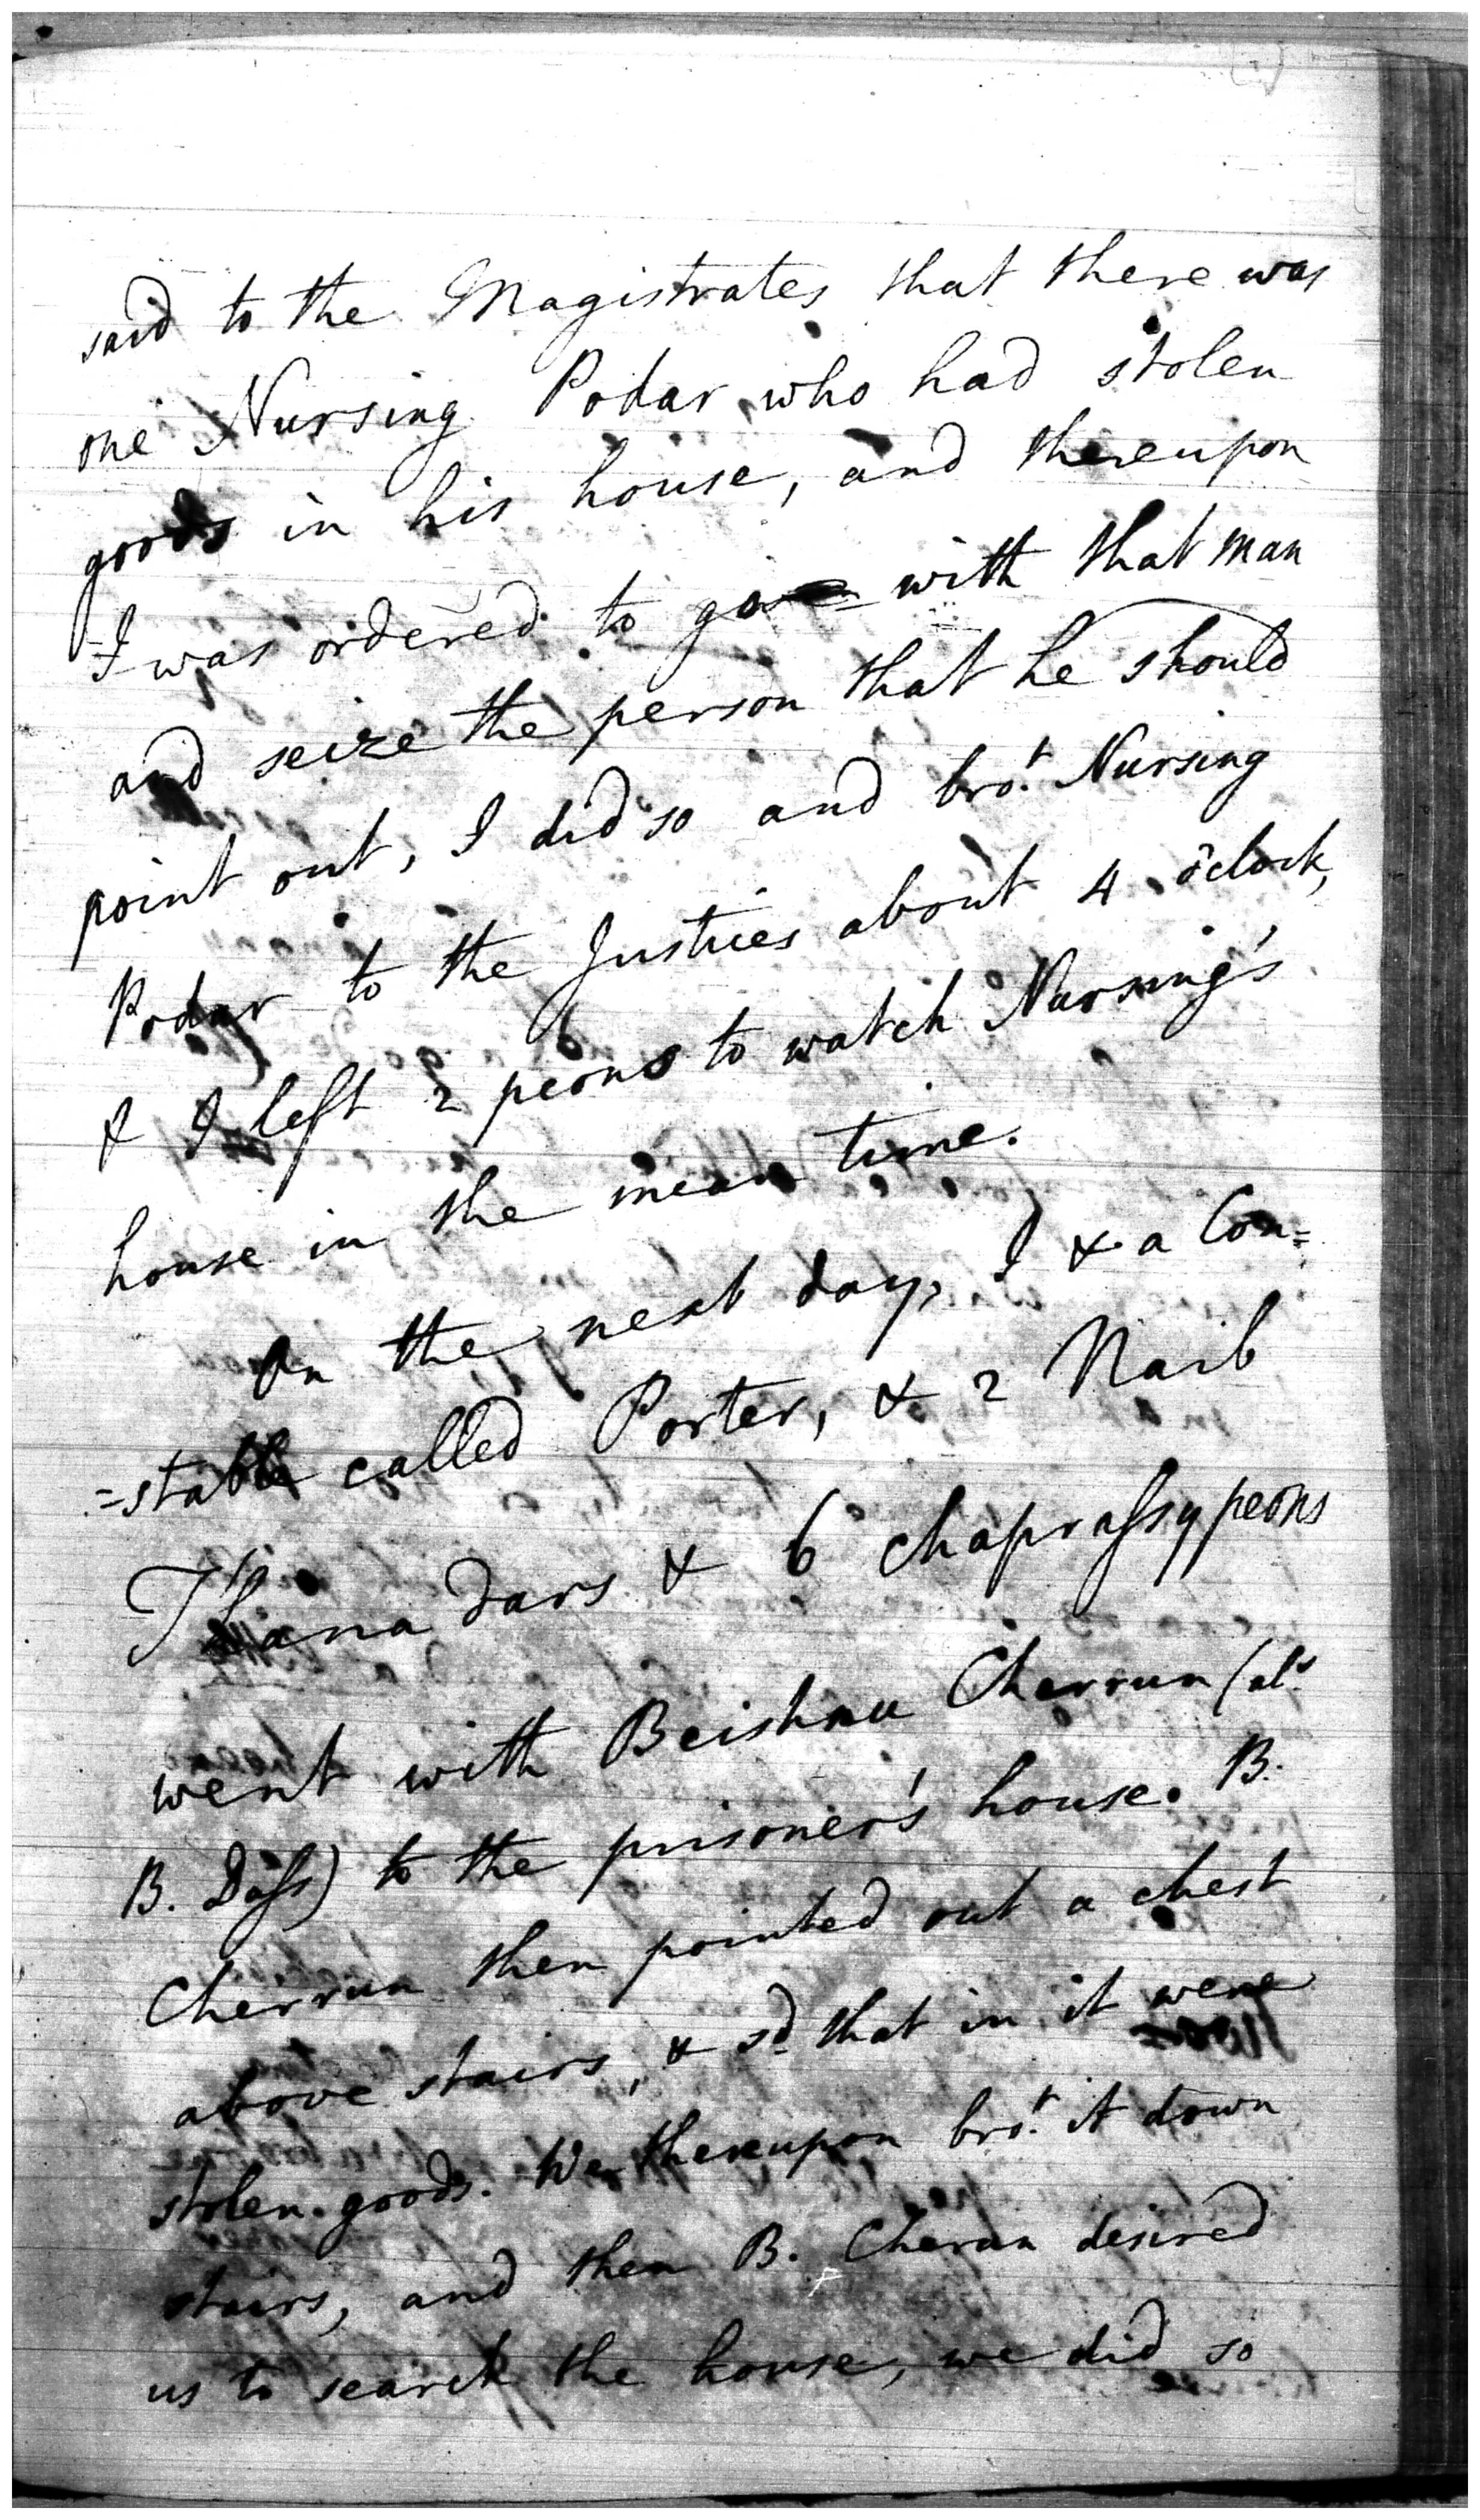 said to the Magistrates that there was
one Nursing Podar, who had stolen
goods in his house, and thereupon
I was ordered to go with that man
and seize the person that he should
point out, I did so and bro.t Nursing
Podar to the Justices about 4 o'clock,
& I left 2 peons to watch Nursing's
house in the mean time.
On the next day, I & a Con=
=stable called Porter, & 2 Naib
Thana dars & 6 chaprassy peons
went with Beishnu Cherrun (al.s
B. Dass) to the prisoner's house. B.
Cherrun then pointed out a chest
above stairs, & sd. that in it were
stolen goods. We thereupon bro.t it down
stairs, and then B. Cherun desired
us to search the house, we did so